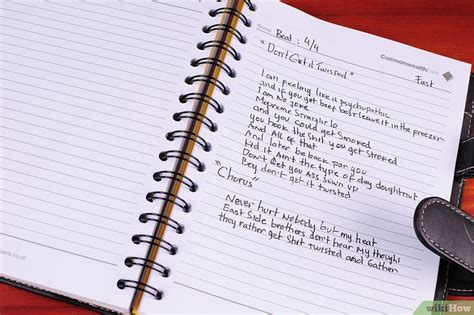 Beat : 4/4
Commonwealth
"Don't Get it Twisted"
Fast
I am feeling like a psychopathic
and if you got beef best leave it in the freezer
I am No Joke
Mepreme Straight lo
and you could get Smoked
you heok the Shit you get Stroked
And All of that
And later be back for you
Kid it Ain't the type of day doughtnut
Don't Get you Ass Sawn up
Bey don't get it twisted
"Chorus"
Never hurt Nobody but my heat
East Side brothers don't hear My thought
they rather get Shit twisted and Gather
wikiHow